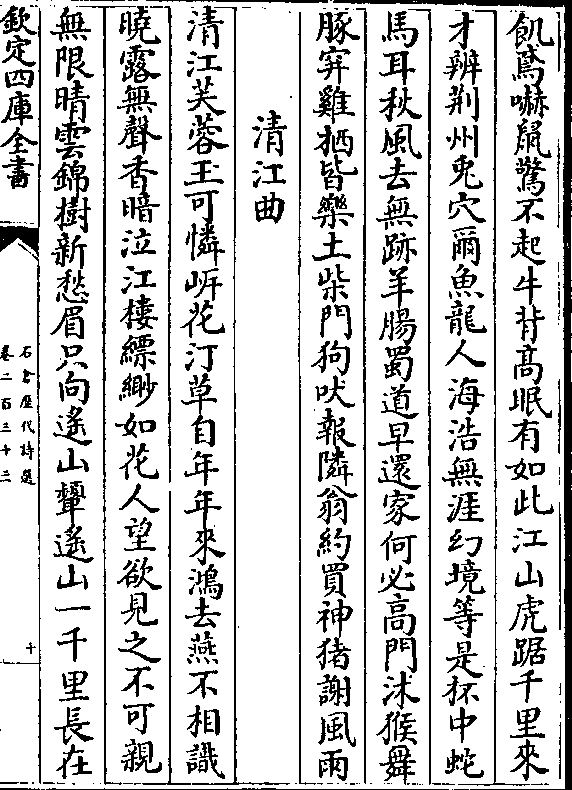 飢鳶嚇鼠驚不起牛背髙眠有如此江山虎踞千里來
才辨荆州兎穴爾魚龍人海浩無涯幻境等是杯中蛇
馬耳秋風去無跡羊腸蜀道早還家何必高門沐猴舞
豚穽雞栖皆樂土柴門狗吠報隣翁約買神猪謝風雨
清江曲
清江芙蓉玉可憐㟁花汀草自年年來鴻去燕不相識
曉露無聲香暗泣江樓縹緲如花人望欲見之不可親
無限晴雲錦樹新愁眉只向遙山顰遙山一千里長在
欽定四庫全書
石倉歷代詩選
卷二百三十二
十